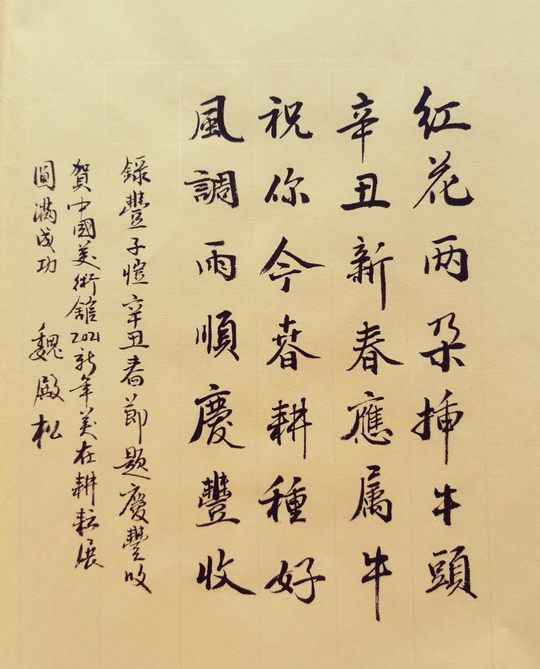 红花两朵插牛頭
辛丑新春應属牛
祝你今春耕種好
風調雨順慶豐收
録豐子愷辛丑春節題慶豐收
賀中國美術館2021新年美在耕耘展
圓满成功 魏殿松